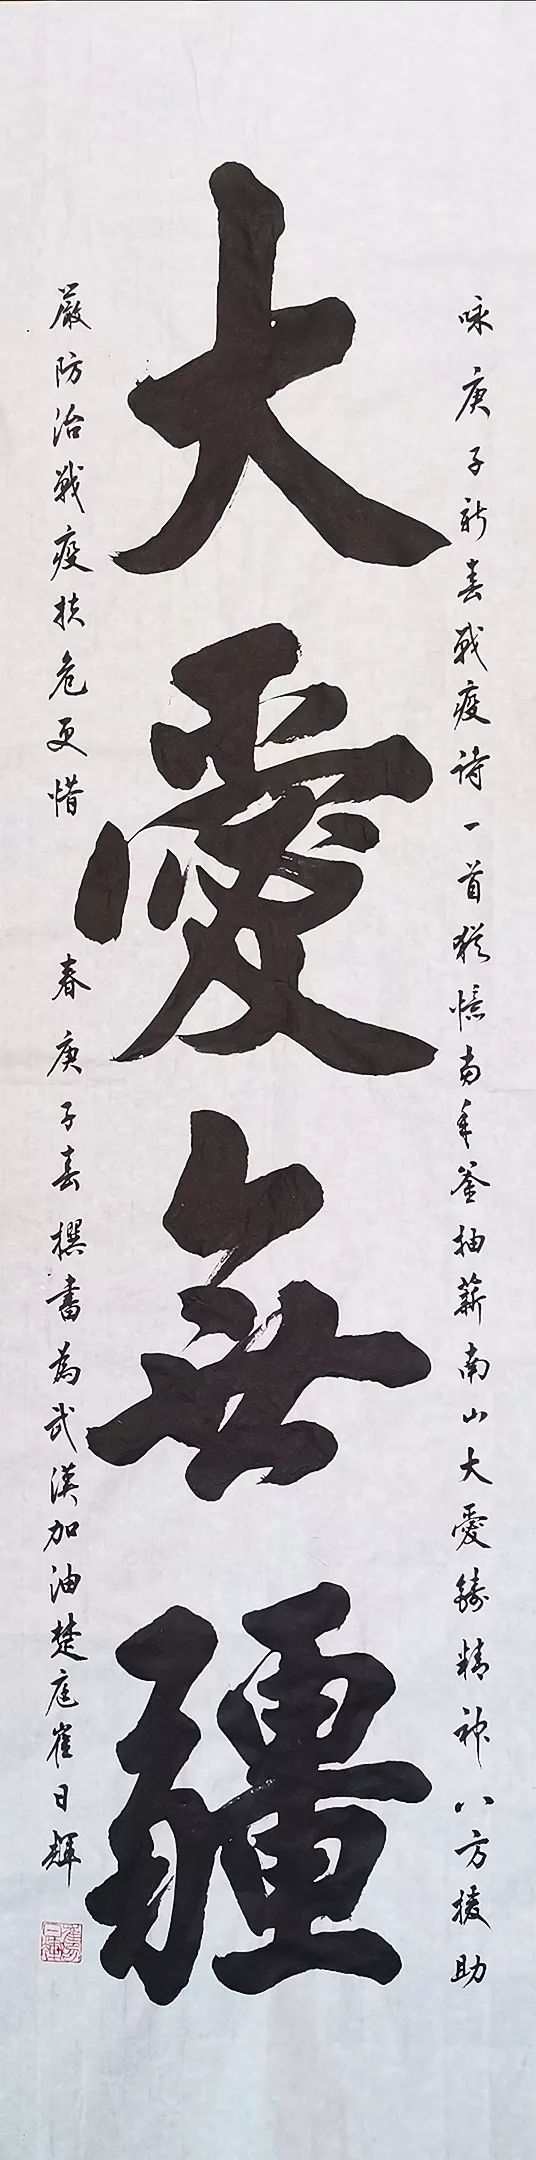 咏庚子新春战疫诗一首犹憶当年釜抽薪南山大愛鑄精神八方援助
大愛無疆
嚴防治戰疫扶危更惜春庚子春撰書為武漢加油楚庭崔日輝